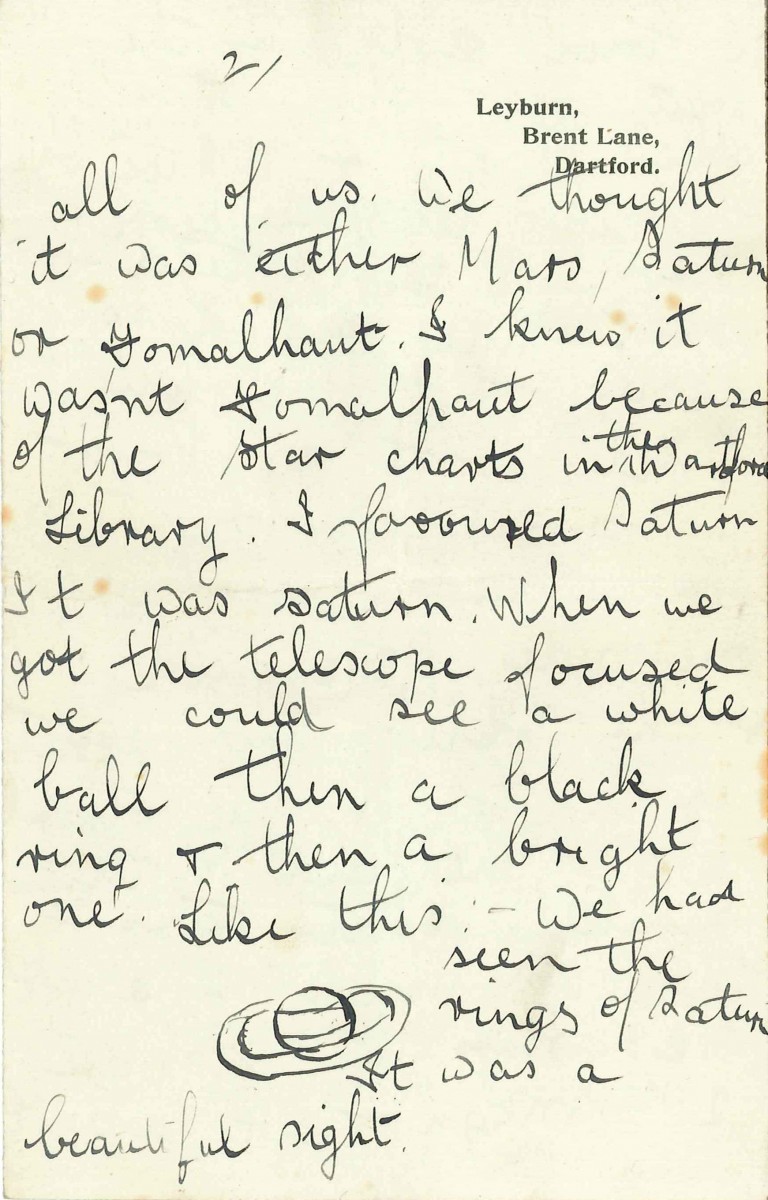 2/
Leyburn,
Brent Lane,
Dartford.
all of us. We thought
it was either Mars, Saturn
or Fomalhaut. I knew it
wasnt Fomalhaut because
of the star charts in the Dartford
Library. I favoured Saturn
It was saturn. When we
got the telescope focused
we could see a white
ball then a black
ring + then a bright
one. Like this :- We had
seen the
rings of Saturn
It was a
beautiful sight.